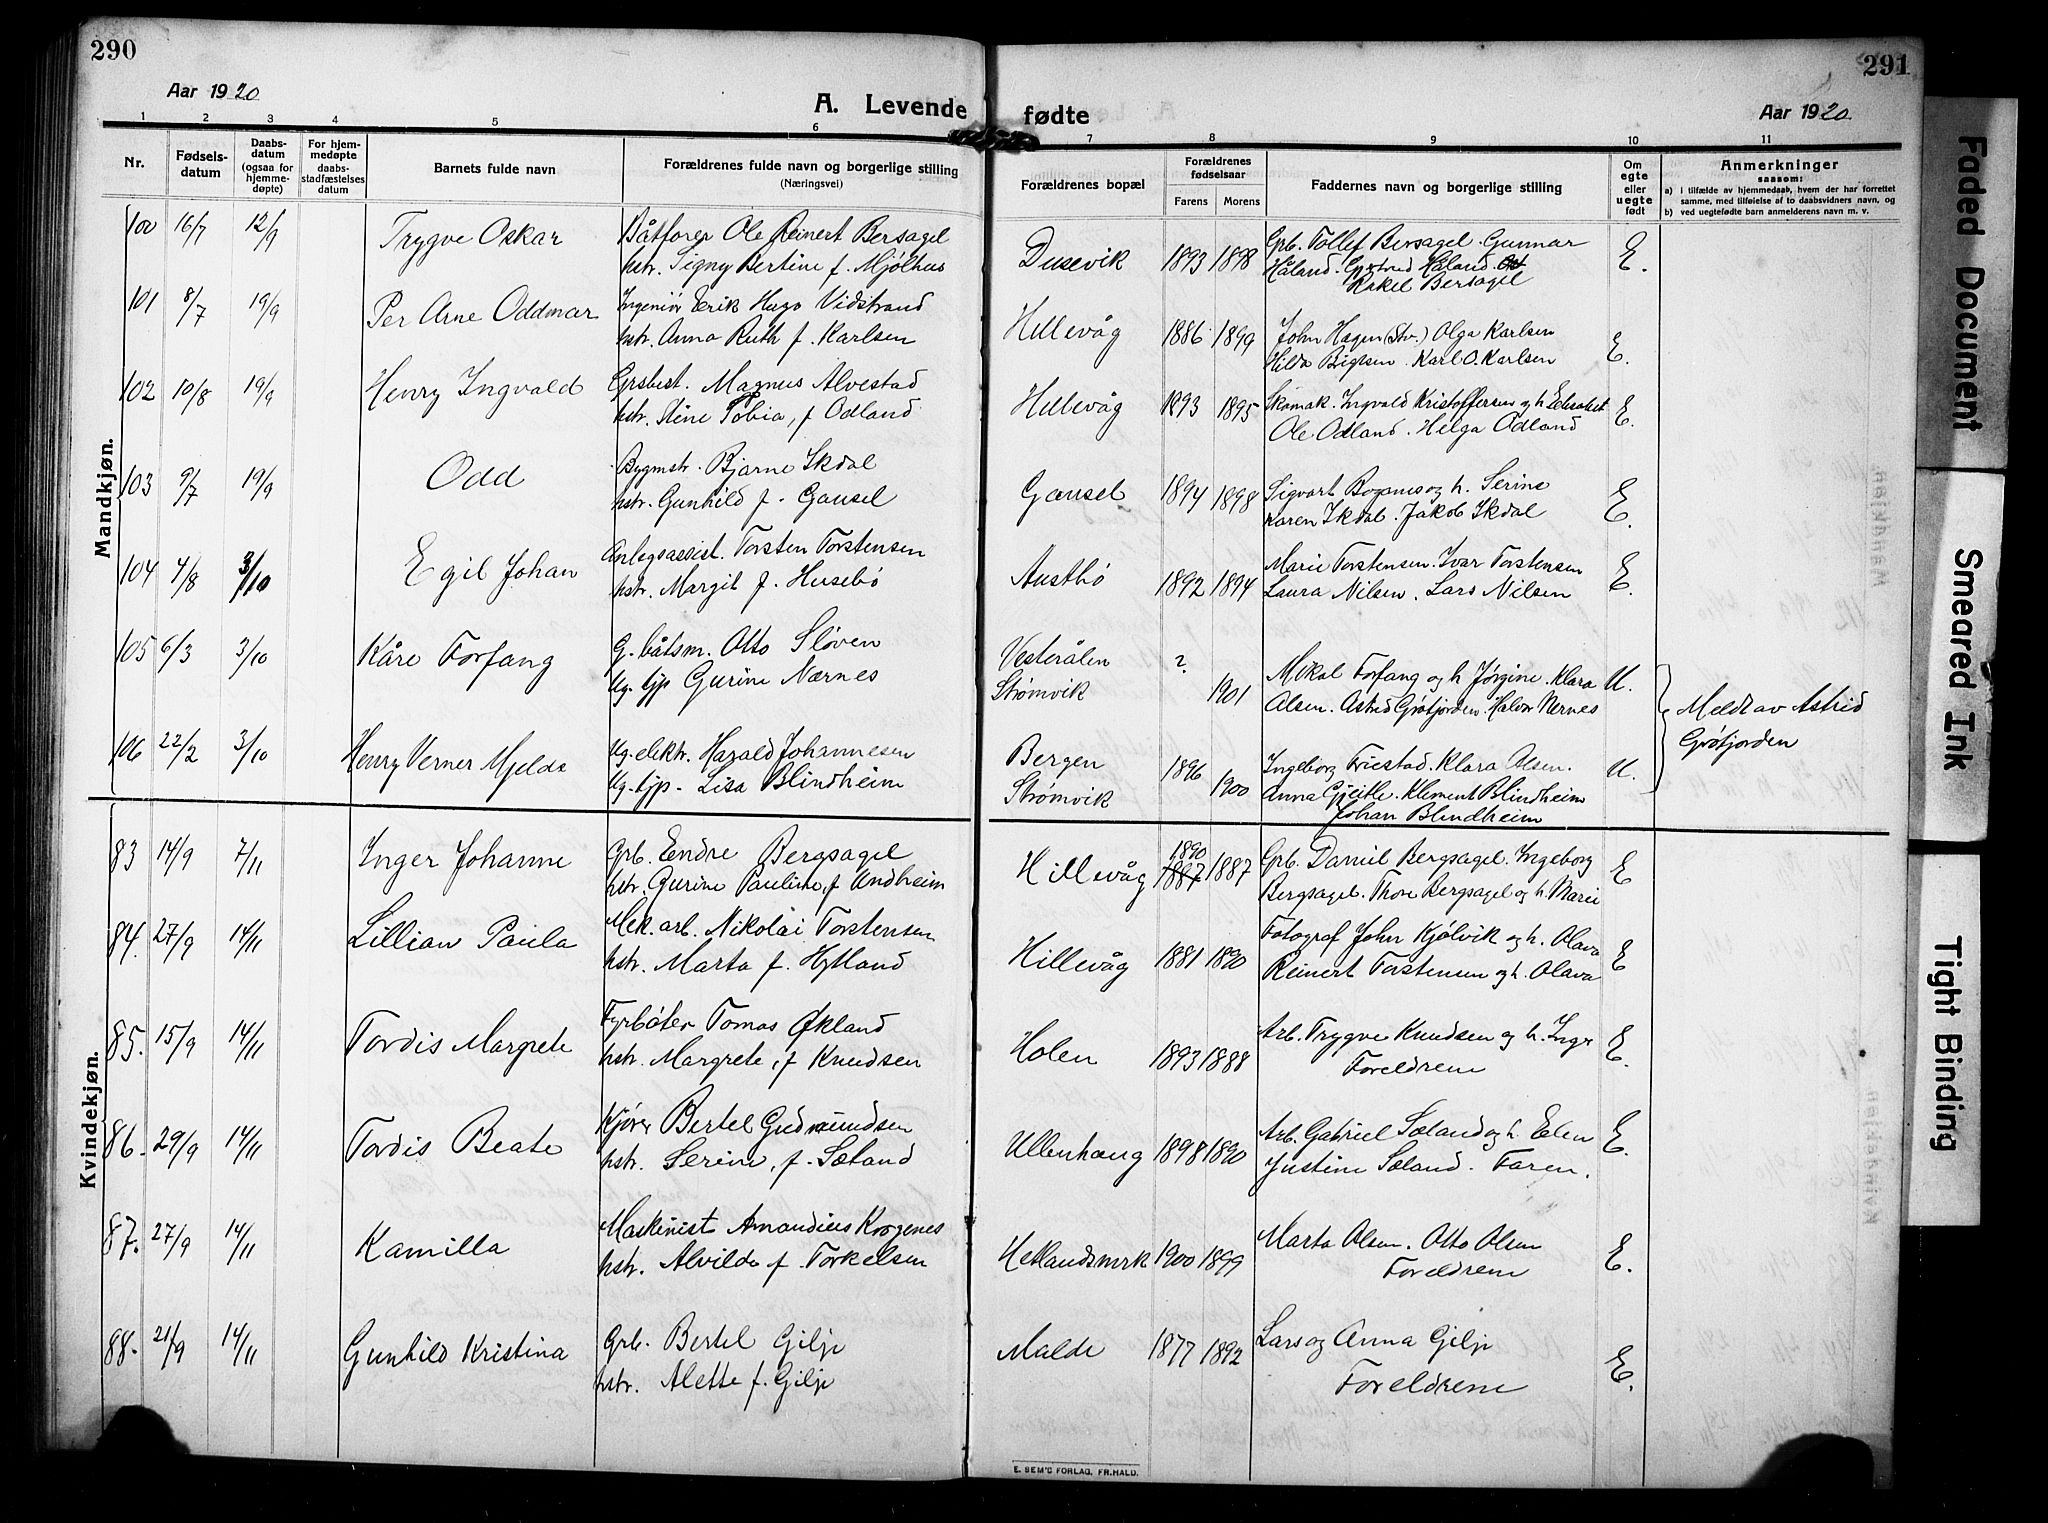 290
291
Aar 1920
Aar 1920
A. Levende fødte
1 2 3 4 5 6 7 8 9 10 11
Nr.
Fødsels-
datum
Daabs-
datum
(ogsaa for
hjemme-
døpte)
For hjem-
medøpte
daabs-
stadfæstelses
datum
Barnets fulde navn
Forældrenes fulde navn og borgerlige stilling
(Næringsvei)
Forældrenes bopæl
Forældrenes
fødselsaar
Farens Morens
Faddernes navn og borgerlige stilling
Om
egte
eller
uegte
født
Anmerkninger
saasom:
a) i tilfælde av hjemmedaab, hvem der har forrettet
samme, med tilføielse af to daabsvidners navn, og
b) ved uegtefødte barn anmelderens navn m. v.
Mandkjøn.
100 16/7 12/9 Trygve Oskar
Båtfører Ole Reinert Bersagel
hstr. Signy Bertine f. Mjølhus
Dusevik 1893 1898
Grb. Tollef Bersagel. Gunnar
Håland. Gjertrud Håland.
Rakel Bersagel
E.
101 8/7 19/9 Per Arne Oddmar
Ingeniør Erik Hugo Vidstrand
hstr. Anna Ruth f. Karlsen
Hillevåg 1886 1899
John Hagen (Stv.) Olga Karlsen
Hilda Karl O. Karlsen
E.
102 10/8 19/9 Henry Ingvald
Grsbest. Magnus Alvestad
hstr. Tobia, f Odland
Hillevåg 1893 1895
Skomak. Ingvald Kristoffersen og h Elisabet
Ole Odland. Helga Odland
E.
103 9/7 19/9 Odd
Bygmstr. Bjarne Ikdal
hstr. Gunhild f. Gausel
Gausel 1894 1898
Sigvart og h. Serine
Karen Ikdal. Jakob Ikdal
E.
104 4/8 3/10 Egil Johan
Anlegsassist. Torsten Torstensen
hstr. Margit f. Husebø
Austbø 1892 1894
Marie Torstensen. Ivar Torstensen
Laura Nilsen. Lars Nilsen
E.
105 6/3 3/10 Kåre Forfang
G. båtsm. Otto Sløven
Ug. tjp Gurine Nærnes
Vesterålen ?
Strømvik 1901
Mikal Forfang og h Jørgine. Klara
Alsen. Astrid Grøtjorden. Halvor Nernes
U.
Meldt av Astrid
Grøtjorden
106 22/2 3/10 Henry Verner Mjelde
Ug. elektr. Harald Johannesen
Ug. tjp. Lisa Blindheim
Bergen 1896
Strømvik 1900
Ingeborg Friestad. Klara Alsen.
Anna Gjeitle. Klement Blindheim
Johan Blindheim
U.
Kvindekjøn.
83 14/9 7/11 Inger Johanne
Grb. Endre Bergsagel
hstr. Gurine Pauline, f Undheim
Hillevåg 1890 1887 1887
Grb. Daniel Bergsagel. Ingeborg
Bergsagel. Thore Bergsagel og h. Marie
E
84. 27/9 14/11 Lillian Paula
Mek. arb. Nikolai Torstensen
hstr. Marta f. Hytland
Hillevåg 1881 1890
Fotograf John Kjølvik og h. Olava
Reinert Torstensen og h. Olava
E
85. 15/9 14/11 Tordis Margrete
Fyrbøter Tomas Økland
hstr. Margrete, f Knudsen
Holen 1893 1888
Arb. Trygve Knudsen og h. Inga
Foreldrene
E.
86. 29/9 14/11 Tordis Beate
Kjører Bertel Gudmundsen
hstr. Serine, f. Sæland
Ullenhaug 1898 1890
Arb. Gabriel Sæland og h Elen
Justine Sæland. Faren.
E.
87. 27/9 14/11 Kamilla
Maskinist Amandius Korgenes
hstr. Alvilde f. Torkelsen
Hetlandsmrk 1900 1899
Marta Olsen. Otto Olsen
Foreldrene
E.
88. 21/9 14/11 Gunhild Kristina
Grb. Bertel Gilje
hstr. Alette f. Gilje
Malde 1877 1892
Lars og Anna Gilje
Foreldrene
E.
E. SEM'S FORLAG, FR.HALD.
Faded Document
Smeared Ink
Tight Binding